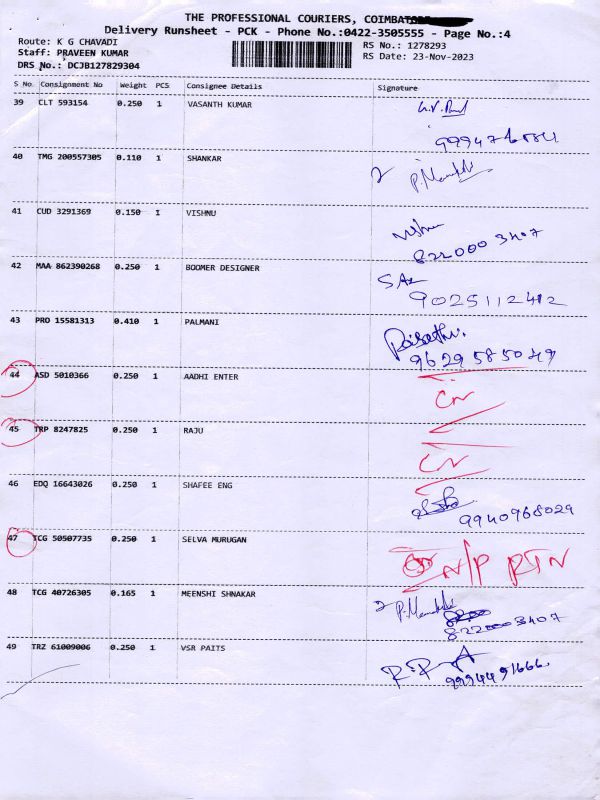 THE PROFESSIONAL COURIERS,
Delivery Runsheet - PCK - Phone No.:0422-3505555 - Page No.:4
Route: K G CHAVADI
RS No.: 1278293
Staff: PRAVEEN KUMAR
RS Date: 23-Nov-2023
DRS No.: DCJB127829304
S No. Consignment No Weight PCS Consignee Details Signature
39 CLT 593154 0.250 1 VASANTH KUMAR
40 TMG 200557305 0.110 1 SHANKAR
41 CUD 3291369 0.150 1 VISHNU
822000 3407
42 MAA 862390268 0.250 1 BOOMER DESIGNER
9025112412
43 PRO 15581313 0.410 1 PALMANI
9629585049
44 ASD 5010366 0.250 1 AADHI ENTER
CN
45 TRP 8247825 0.250 1 RAJU
CN
46 EDQ 16643026 0.250 1 SHAFEE ENG
9940968029
47 TCG 50507735 0.250 1 SELVA MURUGAN
N/P RTN
48 TCG 40726305 0.165 1 MEENSHI SHNAKAR
822000 3407
49 TRZ 61009006 0.250 1 VSR PAITS
9994491666